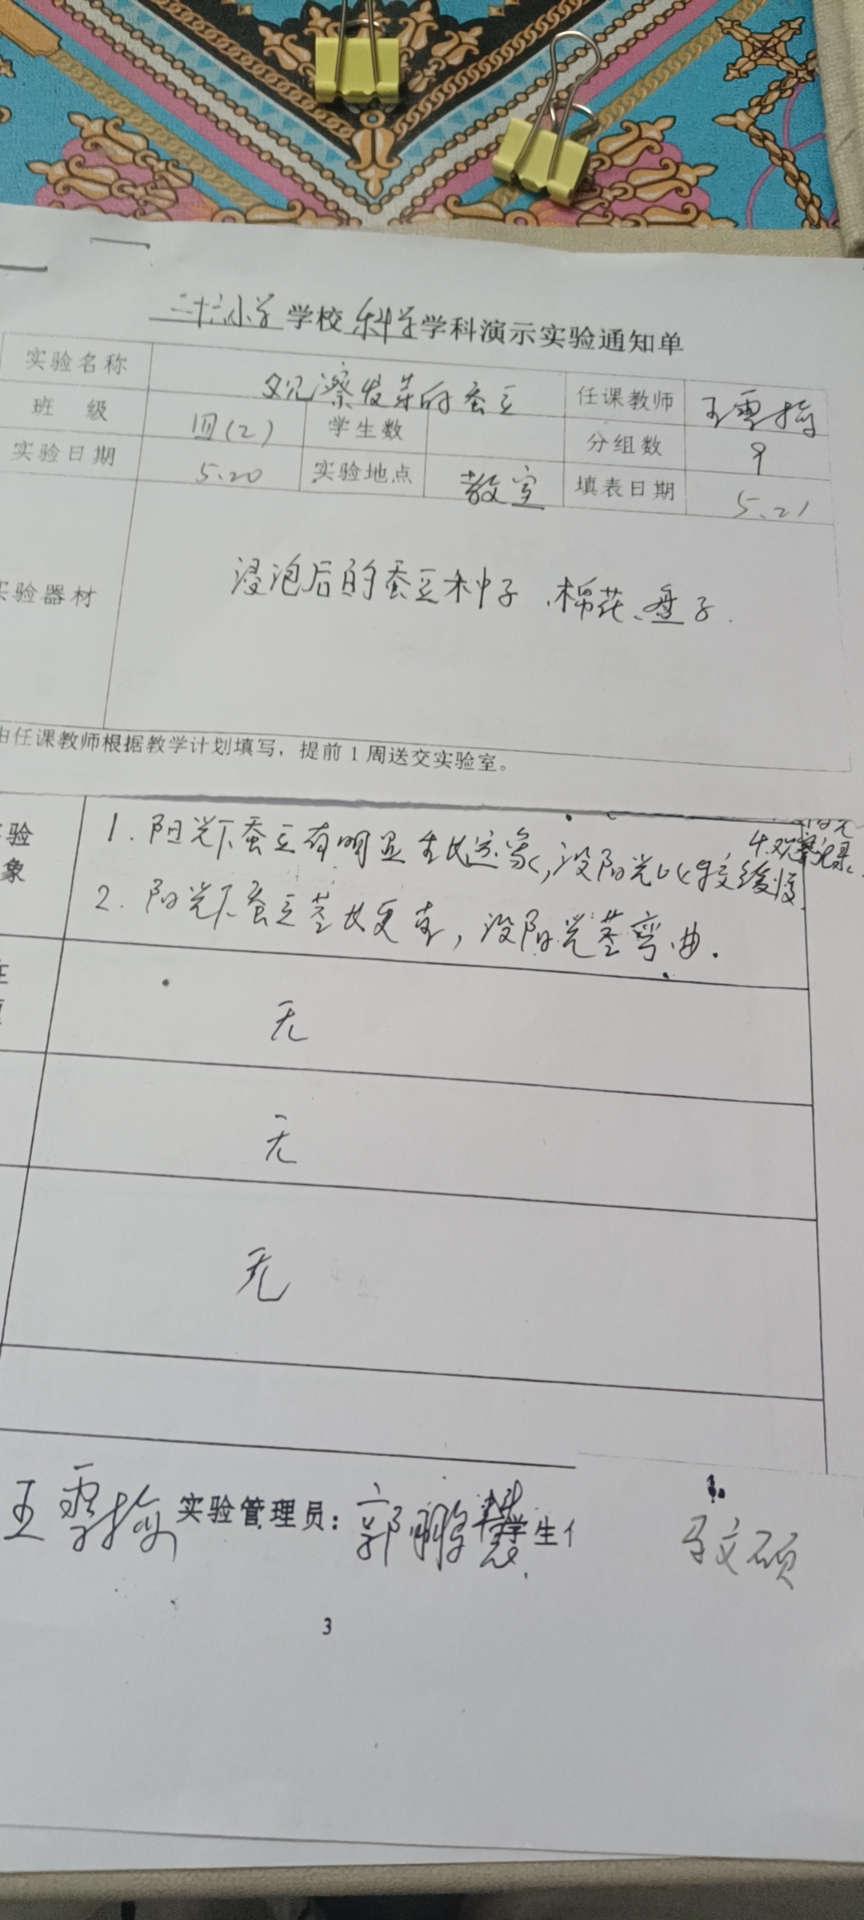 三十六小学学校科学学科演示实验通知单
实验名称 观察发芽的蚕豆 任课教师 王雪梅
班 级 四(2) 学生数 分组数 9
实验日期 5.20 实验地点 教室 填表日期 5.21
实验器材 浸泡后的蚕豆种子、棉花、盘子.
由任课教师根据教学计划填写，提前1周送交实验室。
验 1.阳光下蚕豆有明显生长迹象,没阳光比较缓慢.
象 2.阳光下蚕豆茎长更直,没阳光茎弯曲.
4.观察记录.
无
无
无
王雪梅 实验管理员: 郭鹏慧 学生
文硕
3